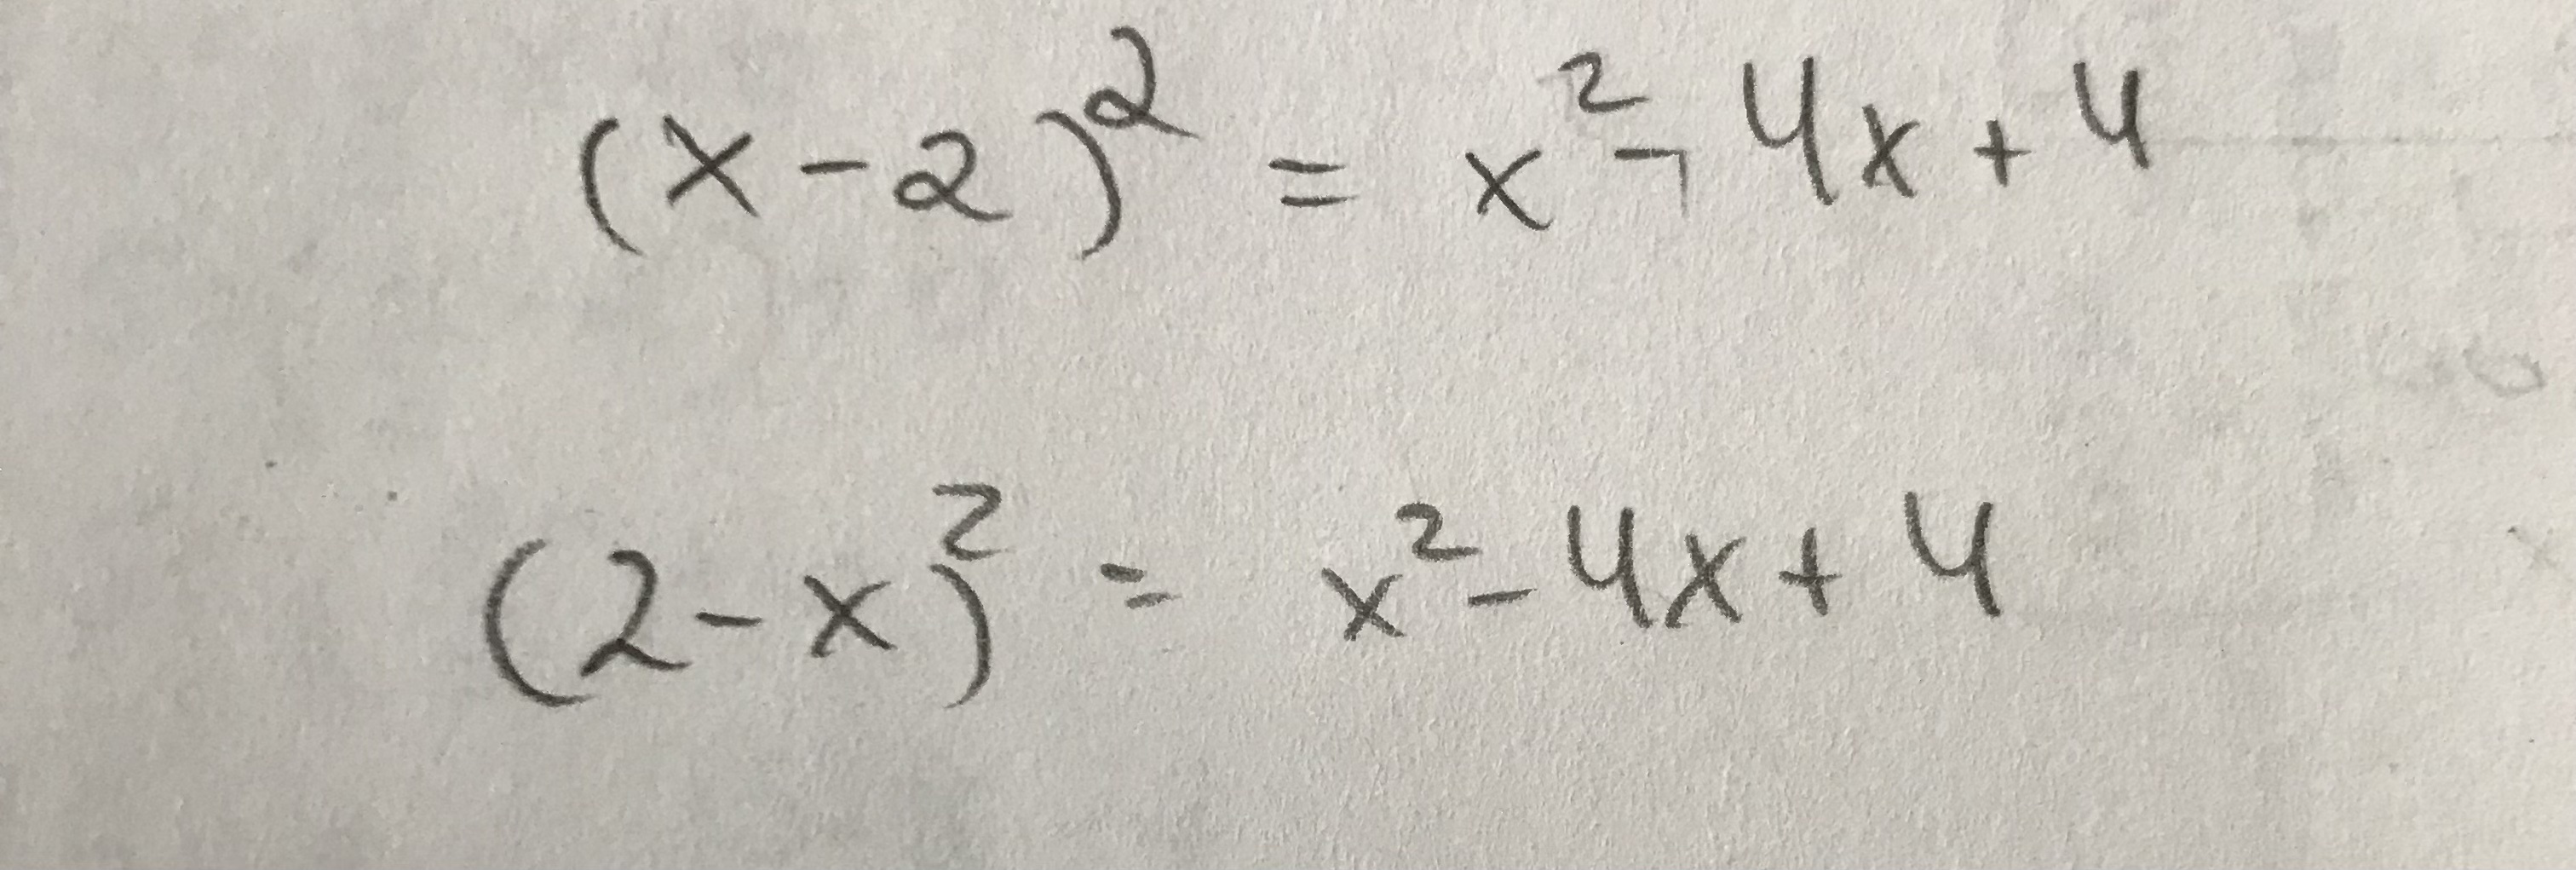 (x-2)² = x² - 4x + 4
(2-x)² = x² - 4x + 4